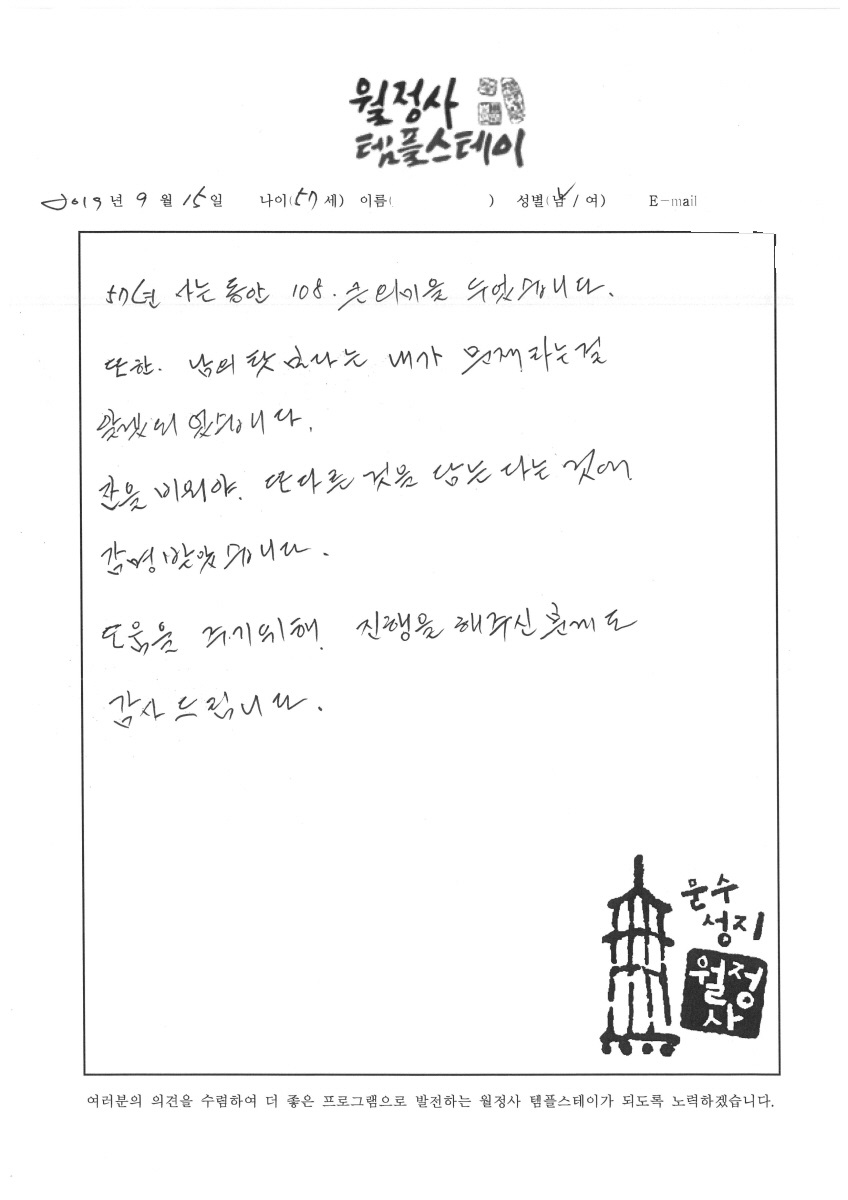 월정사
템플스테이
2019년 9월 15일 나이(57세) 이름( ) 성별(남/여) E-mail
57년 사는 동안 108. 큰 의미을 두었습니다.
또한. 남의 탓 보다는 내가 문제라는걸
알게 되었습니다.
잔을 비워야. 또다른 것을 담는다는 것에
감명 받았습니다.
도움을 주기위해. 진행을 해주신 분께도
감사드립니다.
문수
성지
월정
사
여러분의 의견을 수렴하여 더 좋은 프로그램으로 발전하는 월정사 템플스테이가 되도록 노력하겠습니다.